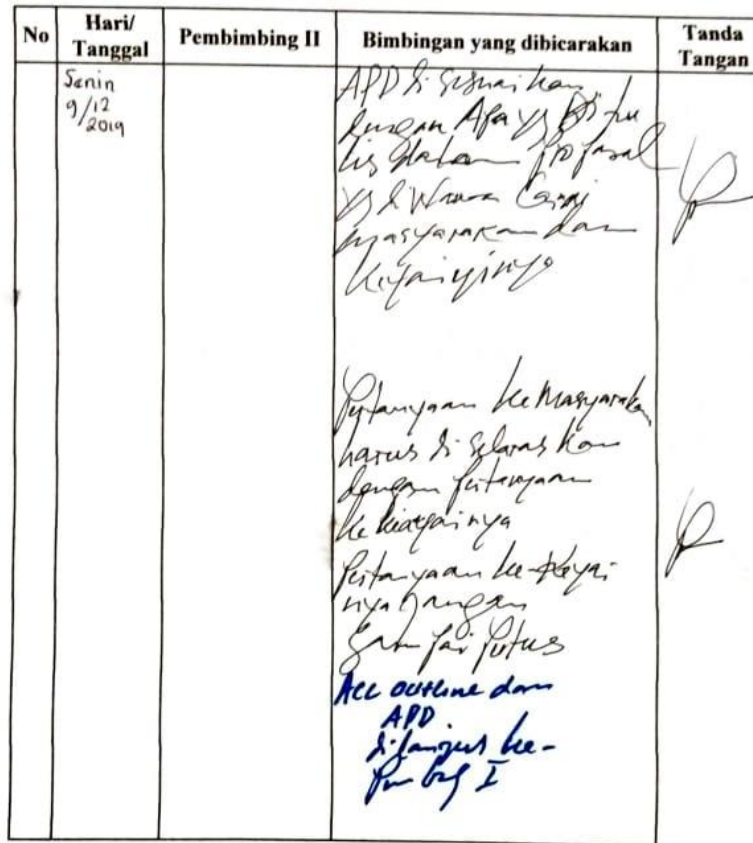 No
Hari/
Tanggal
Pembimbing II
Bimbingan yang dibicarakan
Tanda
Tangan
Senin
9/12
2019
APD di sesuaikan
dengan Apa yg Di tu
lis dalam proposal
yg di Wawan Carai
masyarakan dan
Kiyainyinya
Pertanyaan ke Masyarakan
harus di selaras kan
dengan pertanyaan
ke kiayainya
Pertanyaan ke-Kyai
nya Jangan
Sampai putus
Acc outline dan
APD
di lanjut ke-
Pem bg I